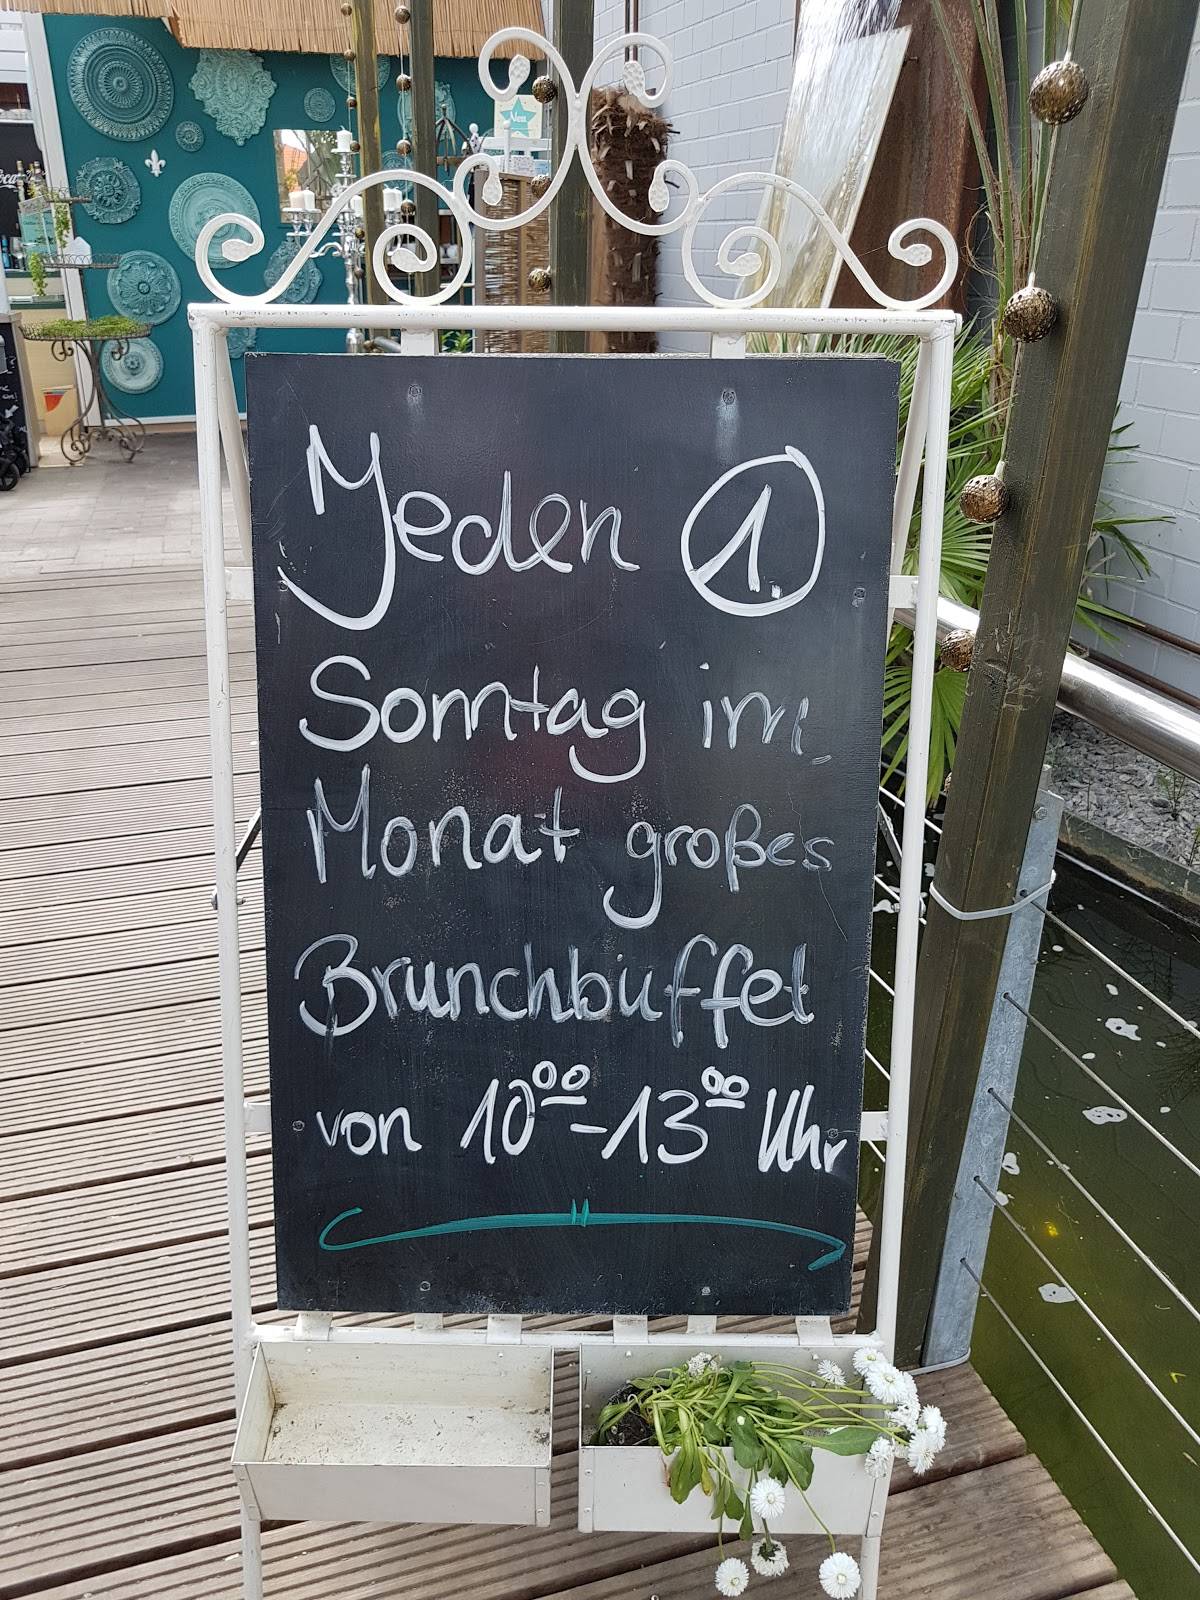 Neu
Jeden 1.
Sonntag im
Monat großes
Brunchbuffet
von 10⁰⁰-13⁰⁰ Uhr